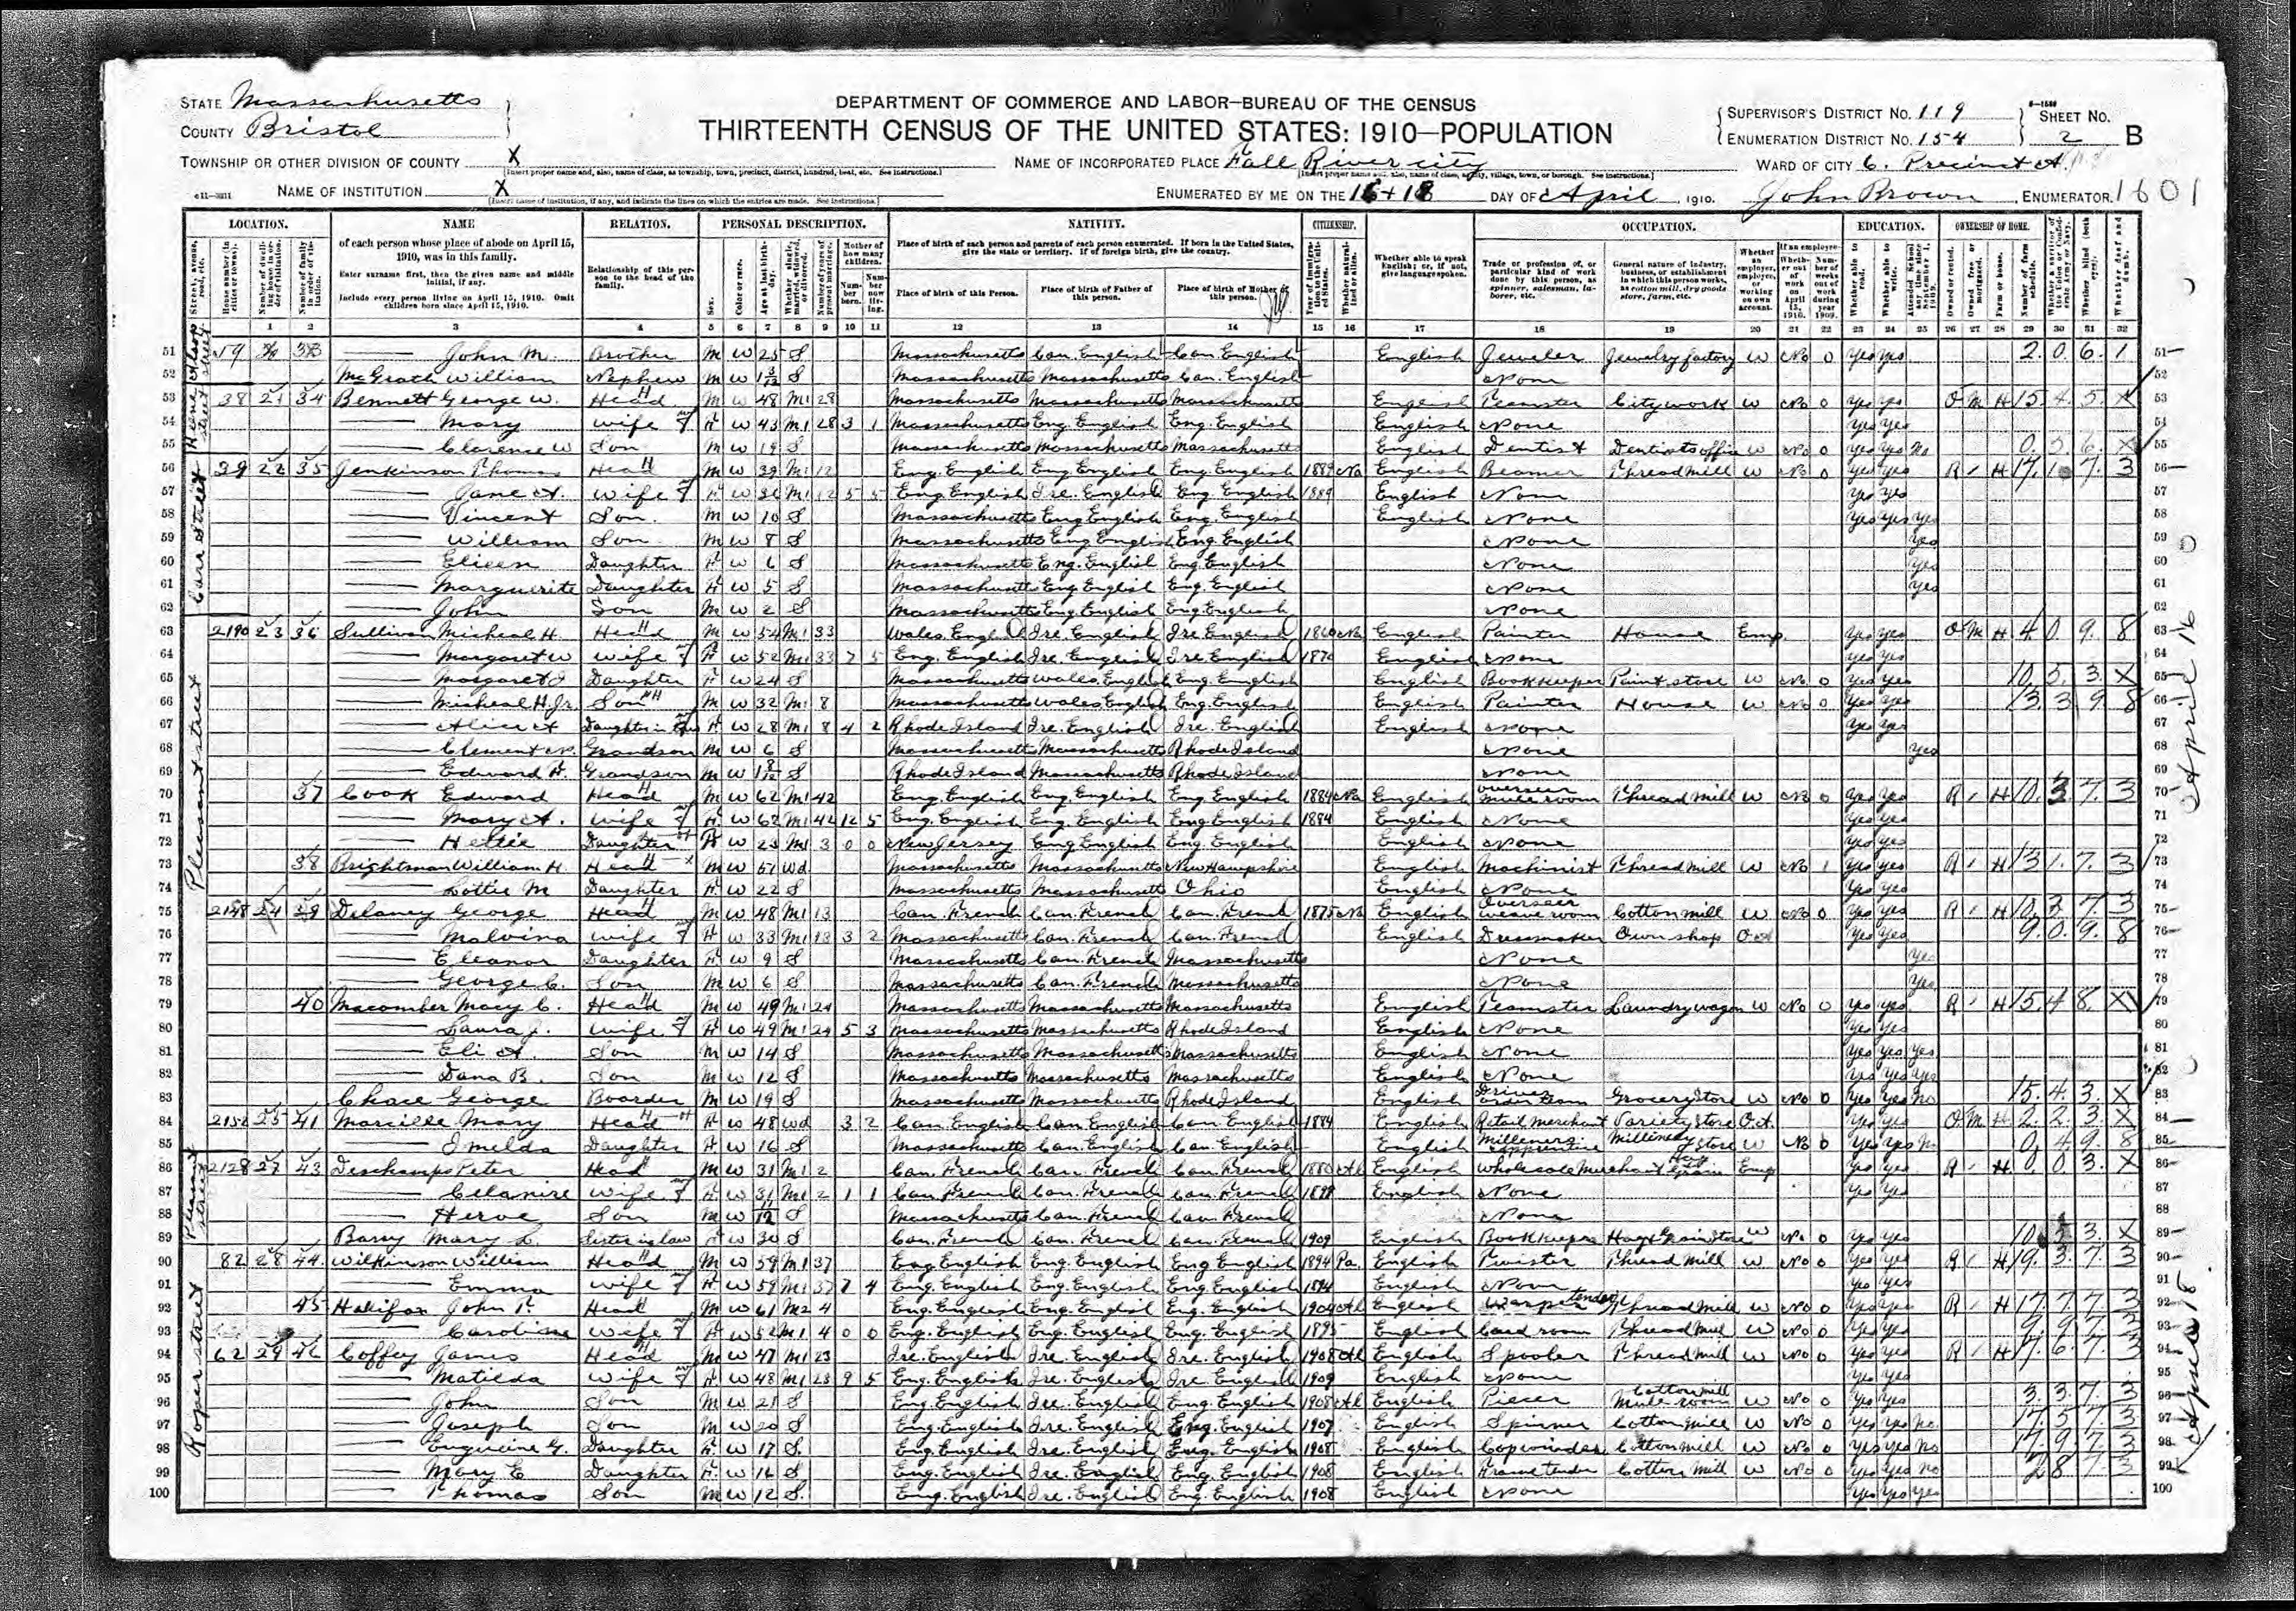 STATE Massachusetts
COUNTY Bristol
TOWNSHIP OR OTHER DIVISION OF COUNTY X
NAME OF INSTITUTION X
DEPARTMENT OF COMMERCE AND LABOR—BUREAU OF THE CENSUS
THIRTEENTH CENSUS OF THE UNITED STATES: 1910—POPULATION
NAME OF INCORPORATED PLACE Fall River city
ENUMERATED BY ME ON THE 16+18 DAY OF April, 1910. John Brown, ENUMERATOR. 1601
SUPERVISOR'S DISTRICT No. 119
ENUMERATION DISTRICT No. 154
SHEET No. 2 B
WARD OF CITY 6. Precinct A.
LOCATION. NAME RELATION. PERSONAL DESCRIPTION. NATIVITY. CITIZENSHIP. OCCUPATION. EDUCATION. OWNERSHIP OF HOME.
of each person whose place of abode on April 15, 1910, was in this family.
Enter surname first, then the given name and middle initial, if any.
Include every person living on April 15, 1910. Omit children born since April 15, 1910.
Relationship of this person to the head of the family.
Place of birth of each person and parents of each person enumerated. If born in the United States, give the state or territory. If of foreign birth, give the country.
Place of birth of this Person. Place of birth of Father of this person. Place of birth of Mother of this person.
Whether able to speak English; or, if not, give language spoken.
Trade or profession of, or particular kind of work done by this person, as spinner, salesman, laborer, etc.
General nature of industry, business, or establishment in which this person works, as cotton mill, dry goods store, farm, etc.
51 59 John M. Brother M W 25 S Massachusetts Can. English Can. English English Jeweler Jewelry factory W No 0 yes yes 2.0 6. 1
52 McGrath William Nephew M W S Massachusetts Massachusetts Can. English None
53 38 21 34 Bennett George W. Head M W 48 M1 28 Massachusetts Massachusetts Massachusetts English Teamster City work W No 0 yes yes O M H 15 4. 5. X
54 Mary wife F W 43 M1 28 3 1 Massachusetts Eng. English Eng. English English None yes yes
55 Clarence W Son M W 19 S Massachusetts Massachusetts Massachusetts English Dentist Dentists office W No 0 yes yes No
56 39 22 35 Jenkinson Thomas Head M W 39 M1 12 Eng. English Eng. English Eng. English 1889 Na English Beamer Thread mill W No 0 yes yes R H 17. 1 7. 3
57 Jane A. wife F W 36 M1 12 5 5 Eng. English Ire. English Eng. English 1889 English None yes yes
58 Vincent Son M W 10 S Massachusetts Eng English Eng. English English None yes yes yes
59 William Son M W 8 S Massachusetts Eng English Eng. English None yes
60 Elieen Daughter F W 6 S Massachusetts Eng. English Eng. English None yes
61 Marguerite Daughter F W 5 S Massachusetts Eng English Eng. English None yes
62 John Son M W 2 S Massachusetts Eng English Eng English None
63 2190 23 36 Sullivan Micheal H. Head M W 54 M1 33 Wales English Ire. English Ire English 1860 Na English Painter House Emp yes yes O M H 4. 0. 9. 8
64 Margaret W wife F W 52 M1 33 7 5 Eng. English Ire. English Ire English 1870 English None yes yes
65 Margaret J Daughter F W 24 S Massachusetts Wales. English Eng. English English Bookkeeper Paint store W No 0 yes yes 10. 5. 3. X
66 Micheal H. Jr. Son M W 32 M1 8 Massachusetts Wales English Eng. English English Painter House W No 0 yes yes 13. 3 9. 8
67 Alice A Daughter in law F W 28 M1 8 4 2 Rhode Island Ire. English Ire. English English None yes yes
68 Clement Grandson M W 6 S Massachusetts Massachusetts Rhode Island None yes
69 Edward F. Grandson M W S Rhode Island Massachusetts Rhode Island None
70 37 Cook Edward Head M W 62 M1 42 Eng. English Eng. English Eng English 1884 Na English Overseer mule room Thread mill W No 0 yes yes R H 10. 3. 7. 3
71 Mary A. wife F W 62 M1 42 12 5 Eng. English Eng. English Eng English 1884 English None yes yes
72 Hettie Daughter F W 23 M1 3 0 0 New Jersey Eng English Eng. English English None yes yes
73 38 Brightman William H. Head M W 57 wd Massachusetts Massachusetts New Hampshire English Machinist Thread mill W No 1 yes yes R H 13 1. 7. 3
74 Lottie M Daughter F W 22 S Massachusetts Massachusetts Ohio English None yes yes
75 2148 24 39 Delaney George Head M W 48 M1 13 Can. French Can. French Can. French 1875 Na English Overseer weave room Cotton mill W No 0 yes yes R H 10. 3. 7. 3
76 Malvina wife F W 33 M1 13 3 2 Massachusetts Can. French Can. French English Dressmaker Own shop O.A. yes yes 9. 0. 9. 8
77 Eleanor Daughter F W 9 S Massachusetts Can. French Massachusetts None yes
78 George C. Son M W 6 S Massachusetts Can. French Massachusetts None yes
79 40 Macomber Macy C. Head M W 49 M1 24 Massachusetts Massachusetts Massachusetts English Teamster Laundry wagon W No 0 yes yes R H 15. 4 8. X
80 Laura J. wife F W 49 M1 24 5 3 Massachusetts Massachusetts Rhode Island English None yes yes
81 Eli A. Son M W 14 S Massachusetts Massachusetts Massachusetts English None yes yes yes
82 Dana B. Son M W 12 S Massachusetts Massachusetts Massachusetts English None yes yes yes
83 Chace George Boarder M W 19 S Massachusetts Massachusetts Rhode Island English Driver Grocery store W No 0 yes yes No 15. 4 3. X
84 2152 25 41 Marcille Mary Head F W 48 wd 3 2 Can. English Can. English Can. English 1884 English Retail merchant Variety store O.A. yes yes O M H 2. 2. 3. X
85 Imelda Daughter F W 16 S Massachusetts Can. English Can. English English Milleners apprentice Millinery store W No 0 yes yes No 0. 4 9. 8
86 2128 27 43 Deschamps Peter Head M W 31 M1 2 Can. French Can. French Can. French 1880 Al English Wholesale Merchant Hay grain Emp yes yes R H 0 3. X
87 Celanire wife F W 31 M1 2 1 1 Can. French Can. French Can. French 1899 English None yes yes
88 Herve Son M W S Massachusetts Can. French Can. French None
89 Barry Mary L. Sister in law F W 30 S Can. French Can. French Can. French 1909 English Bookkeeper Hay Grain store W No 0 yes yes 10 5 3. X
90 82 28 44 Wilkinson William Head M W 59 M1 37 Eng English Eng. English Eng English 1894 Pa. English Twister Thread mill W No 0 yes yes R H 19. 3. 7. 3
91 Emma wife F W 59 M1 37 7 4 Eng. English Eng. English Eng English 1894 English None yes yes
92 45 Halifax John T. Head M W 61 M2 4 Eng. English Eng. English Eng. English 1904 Al English Warper tender Thread mill W No 0 yes yes R H 17. 7. 7. 3
93 Caroline wife F W 52 M1 4 0 0 Eng. English Eng. English Eng. English 1895 English Card room Thread mill W No 0 yes yes
94 62 29 46 Coffey James Head M W 47 M1 23 Ire. English Ire. English Ire. English 1908 Al English Spooler Thread mill W No 0 yes yes R H 17. 6. 7. 3
95 Matilda wife F W 48 M1 23 9 5 Eng. English Ire. English Ire. English 1909 English None yes yes
96 John Son M W 21 S Eng. English Ire. English Eng. English 1908 Al English Piecer Cotton mill mule room W No 0 yes yes 3. 3. 7. 3
97 Joseph Son M W 20 S Eng. English Ire. English Eng. English 1907 English Spinner Cotton mill W No 0 yes yes no 17. 5 7. 3
98 Daughter F W 17 S. Eng. English Ire. English Eng. English 1908 English Copwinder Cotton mill W No 0 yes yes no 17. 9 7. 3
99 Mary E Daughter F W 16 S Eng. English Ire. English Eng. English 1908 English Frame tender Cotton mill W No 0 yes yes no 2 8 7 3
100 Thomas Son M W 12 S. Eng. English Ire. English Eng. English 1908 English None yes yes yes
Carr street
Pleasant street
Pleasant street
Roper street
April 16
April 18